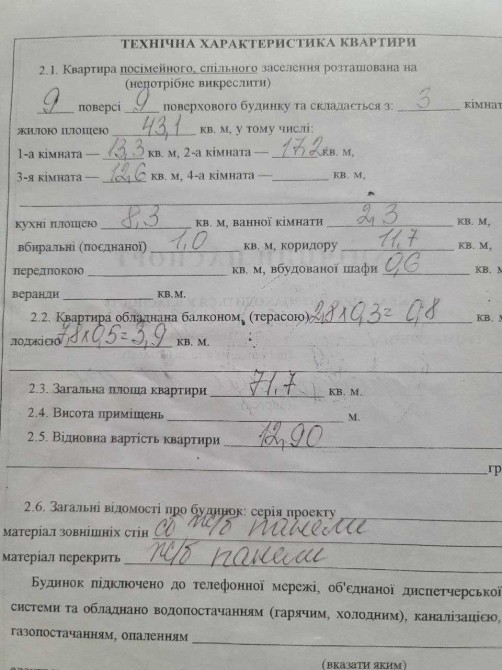 ТЕХНІЧНА ХАРАКТЕРИСТИКА КВАРТИРИ
2.1. Квартира посімейного, спільного заселення розташована на
(непотрібне викреслити)
9 поверсі 9 поверхового будинку та складається з: 3 кімнат
жилою площею 43,1 кв. м, у тому числі:
1-а кімната — 13,3 кв. м, 2-а кімната — 17,2 кв. м,
3-я кімната — 12,6 кв. м, 4-а кімната — кв. м,
кухні площею 8,3 кв. м, ванної кімнати 2,3 кв. м,
вбиральні (поєднаної) 1,0 кв. м, коридору 11,7 кв. м,
передпокою кв. м, вбудованої шафи 0,6 кв. м
веранди кв.м.
2.2. Квартира обладнана балконом, (терасою) 2,8х0,3= 0,8 кв.
лоджією 7,8х0,5=3,9 кв. м.
2.3. Загальна площа квартири 71,7 кв. м.
2.4. Висота приміщень м.
2.5. Відновна вартість квартири 12,90
гр
2.6. Загальні відомості про будинок: серія проекту
матеріал зовнішніх стін ж/б панели
матеріал перекрить ж/б панели
Будинок підключено до телефонної мережі, об'єднаної диспетчерської
системи та обладнано водопостачанням (гарячим, холодним), каналізацією,
газопостачанням, опаленням
(вказати яким)